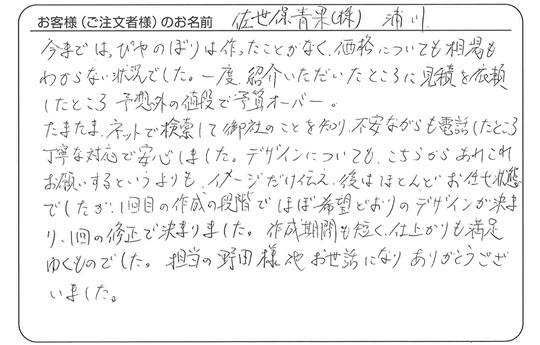 お客様(ご注文者様)のお名前 佐世保青果(株) 浦川
今まで はっぴやのぼりは作ったことがなく、価格についても相場も
わからない状況でした。一度 紹介いただいたところに見積を依頼
したところ 予想外の値段で予算オーバー。
たまたま、ネットで検索して御社のことを知り、不安ながらも電話したところ
丁寧な対応で安心しました。デザインについても、こちらからあれこれ
お願いするというよりも、イメージだけ伝え、後はほとんどお任せ状態
でしたが、1回目の作成の段階でほぼ希望どおりのデザインが決ま
り、1回の修正で決まりました。作成期間も短く、仕上がりも満足
ゆくものでした。担当の野田様 お世話になり ありがとうござ
いました。